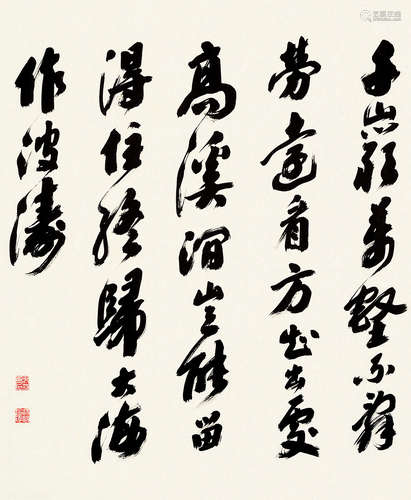 千巖萬壑不辭
勞遠看方知出處
高溪澗豈能留
得住終歸大海
作波濤